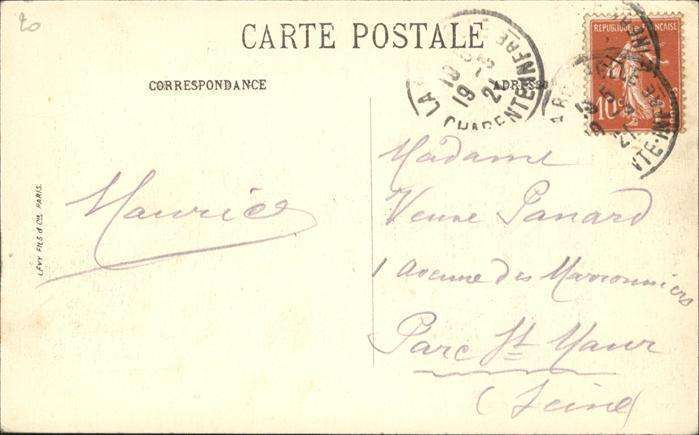 20
CARTE POSTALE
CORRESPONDANCE
ADRESSE
REPUBLIQUE FRANÇAISE
10
LA
CHARENTE-INFRE
Madame
Veuve Panard
1 Avenue des Marronniers
Parc St Maur
(Seine)
Maurice
LÉVY FILS & Cie, PARIS.